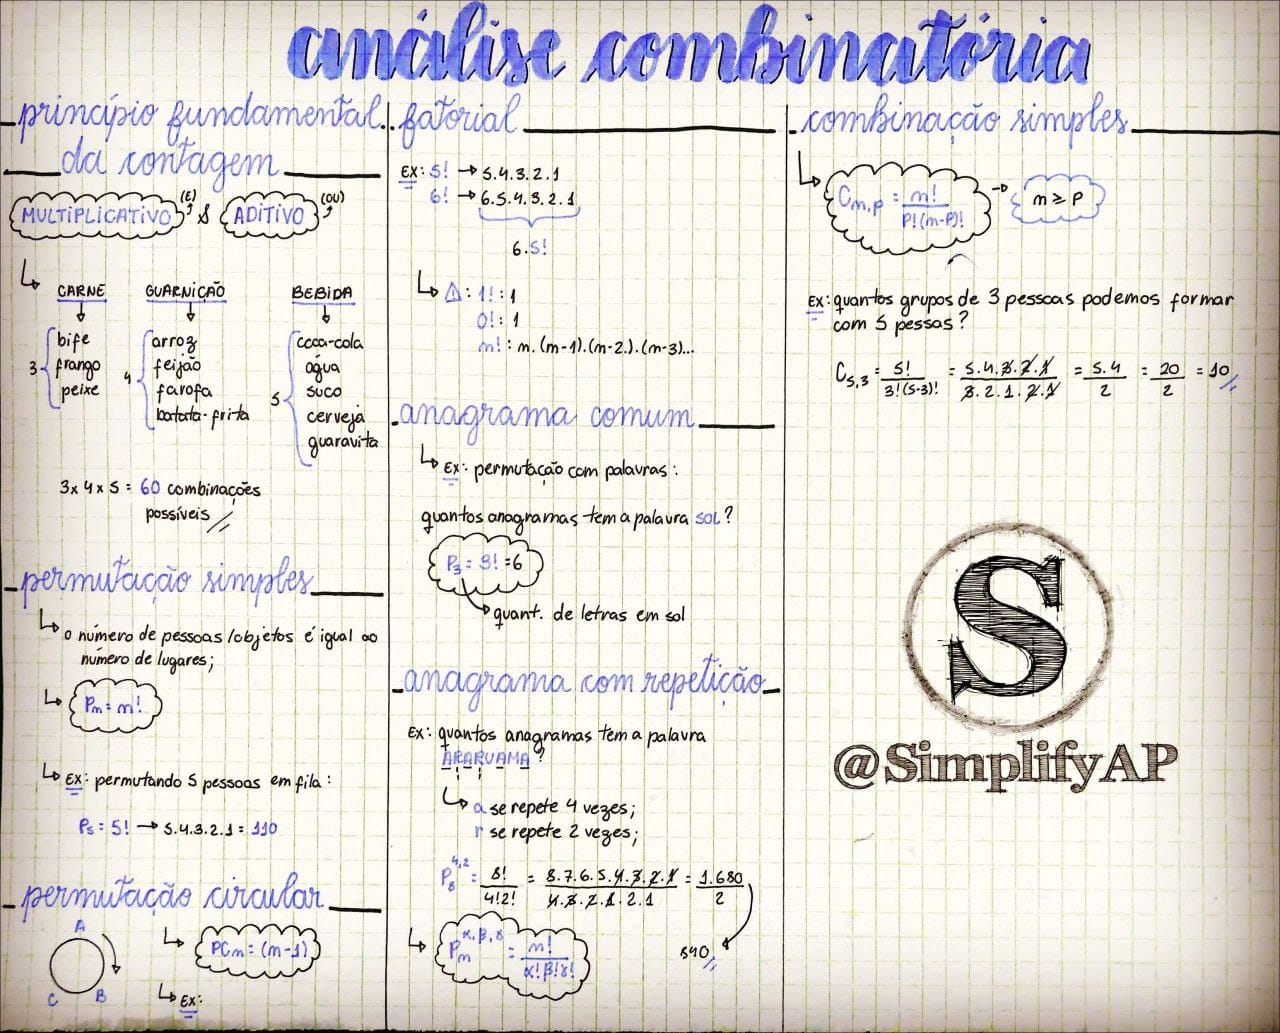 análise combinatória
princípio fundamental
da contagem
MULTIPLICATIVO (E) & ADITIVO (OU)
CARNE GUARNIÇÃO BEBIDA
3 bife
frango
peixe
4 arroz
feijão
farofa
batata-frita
5 coca-cola
água
suco
cerveja
guaravita
3 x 4 x 5 = 60 combinações
possíveis //
permutação simples
↳ o número de pessoas/objetos é igual ao
número de lugares;
↳ Pn = n!
↳ EX: permutando 5 pessoas em fila:
P5 = 5! → 5.4.3.2.1 = 110
permutação circular
A
B
C
↳ PCn = (n-1)
↳ EX:
fatorial
EX: 5! → 5.4.3.2.1
6! → 6.5.4.3.2.1
6.5!
↳ ⚠: 1! : 1
0! : 1
n! : n.(n-1).(n-2.).(n-3)...
anagrama comum
↳ EX: permutação com palavras:
quantos anagramas tem a palavra SOL?
P3 = 3! = 6
quant. de letras em sol
anagrama com repetição
EX: quantos anagramas tem a palavra
ARARUAMA?
↳ a se repete 4 vezes;
r se repete 2 vezes;
P8^4,2 = 8!/4!2! = 8.7.6.5.4.3.2.1/4.3.2.1.2.1 = 1.680/2
840 //
↳ Pn^α,β,γ = n!/α!β!γ!
combinação simples
↳ Cn,p = n!/p!(n-p)! → n ≥ p
EX: quantos grupos de 3 pessoas podemos formar
com 5 pessas?
C5,3 = 5!/3!(5-3)! = 5.4.3.2.1/3.2.1.2.1 = 5.4/2 = 20/2 = 10 //
S
@SimplifyAP